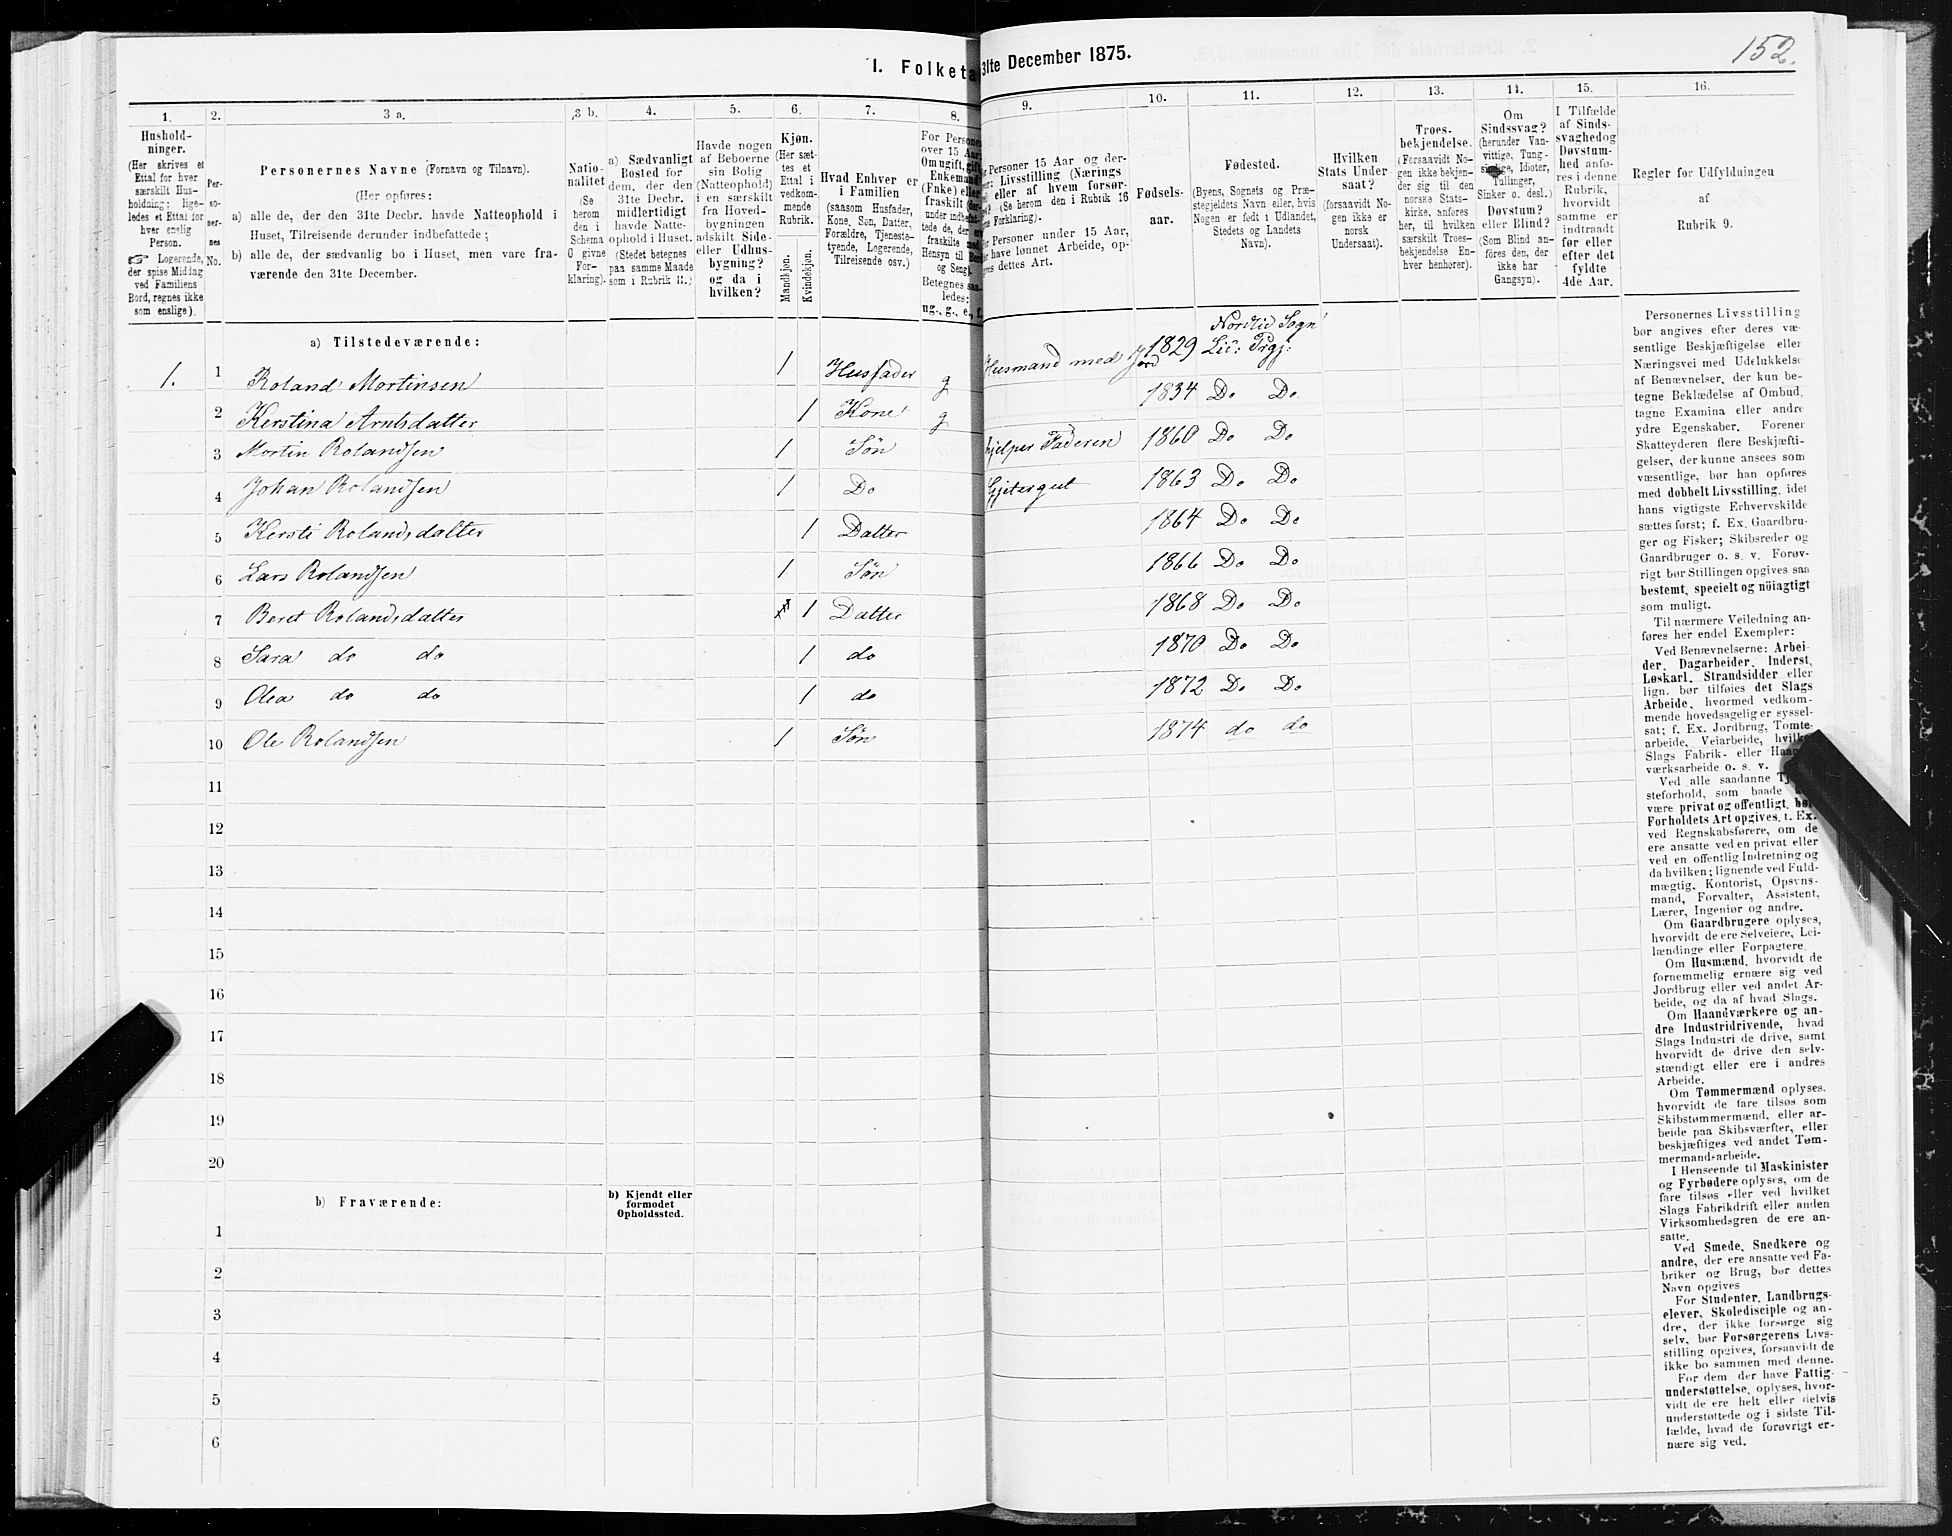 152.
1. Folketa
31te December 1875.
1. 2. 3 a. 3 b. 4. 5. 6. 7. 8. 9. 10. 11. 12. 13. 14. 15. 16.
Hushold-
ninger.
(Her skrives et
Ettal for hver
særskilt Hus-
holdning; lige-
ledes et Ettal for
hver enslig
Person.
☞ Logerende,
der spise Middag
ved Familiens
Bord, regnes ikke
som enslige).
Per-
so-
ner-
nes
No.
Personernes Navne (Fornavn og Tilnavn).
(Her opføres:
a) alle de, der den 31te Decbr. havde Natteophold i
Huset, Tilreisende derunder indbefattede;
b) alle de, der sædvanlig bo i Huset, men vare fra-
værende den 31te December.
Natio-
nalitet
(Se
herom
den i
Schema
G givne
For-
klaring).
a) Sædvanligt
Bosted for
dem, der den
31te Decbr.
midlertidigt
havde Natte-
ophold i Huset.
(Stedet betegnes
paa samme Maade
som i Rubrik 11.)
Havde nogen
af Beboerne
sin Bolig
(Natteophold)
i en særskilt
fra Hoved-
bygningen
adskilt Side-
eller Udhus-
bygning?
og da i
hvilken?
Kjøn.
(Her sæt-
tes et
Ettal i
vedkom-
mende
Rubrik.
Mandkjøn.
Kvindekjøn.
Hvad Enhver er
i Familien
(saasom Husfader,
Kone, Søn, Datter,
Forældre, Tjeneste-
tyende, Logerende,
Tilreisende osv.)
For Persone
over 15 Aar
Om ugift, gift
Enkemand
(Enke) eller
fraskilt (der-
under indbefat-
tede de, der er
fraskilte med
Hensyn til Bord
og Seng).
Betegnes saa-
ledes:
ug., g., e., f.
Personer 15 Aar og der-
Livsstilling (Nærings
eller af hvem forsør-
(Se herom den i Rubrik 16
Forklaring).
Personer under 15 Aar,
have lønnet Arbeide, op-
dettes Art.
Fødsels-
aar.
Fødested.
(Byens, Sognets og Præ-
stegjeldets Navn eller, hvis
Nogen er født i Udlandet,
Stedets og Landets
Navn).
Hvilken
Stats Under-
saat?
(forsaavidt No-
gen ikke er
norsk
Undersaat).
Troes-
bekjendelse.
(Forsaavidt No-
gen ikke bekjen-
der sig til den
norske Stats-
kirke, anføres
her, til hvilken
særskilt Troes-
bekjendelse En-
hver henhører).
Om
Sindssvag?
(herunder Van-
vittige, Tung-
sindige, Idioter,
Tullinger,
Sinker o. desl.)
Døvstum?
eller Blind?
(Som Blind an-
føres den, der
ikke har
Gangsyn).
I Tilfælde
af Sinds-
svaghed og
Døvstum-
hed anfø-
res i denne
Rubrik,
hvorvidt
samme er
indtraadt
før eller
efter det
fyldte
4de Aar.
Regler for Udfyldningen
af
Rubrik 9.
a) Tilstedeværende:
1. 1 Roland Mortinsen 1 Husfader g Husmand med Jord 1829 Nordlid Sogn Lid: Prgj:
2 Kerstina Arntsdatter 1 Kone g 1834 Do Do
3 Mortin Rolandsen 1 Søn hjelper Faderen 1860 Do Do
4 Johan Rolandsen 1 Do Gjetergut 1863 Do Do
5 Kersti Rolandsdatter 1 Datter 1864 Do Do
6 Lars Rolandsen 1 Søn 1866 Do Do
7 Beret Rolandsdatter 1 Datter 1868 Do Do
8 Sara do do 1 do 1870 Do Do
9 Olea do do 1 do 1872 Do Do
10 Ole Rolandsen 1 Søn 1874 do do
11
12
13
14
15
16
17
18
19
20
b) Fraværende:
b) Kjendt eller
formodet
Opholdssted.
1
2
3
4
5
6
Personernes Livsstilling
bør angives efter deres væ-
sentlige Beskjæftigelse eller
Næringsvei med Udelukkelse
af Benævnelser, der kun be-
tegne Beklædelse af Ombud,
tagne Examina eller andre
ydre Egenskaber. Forener
Skatteyderen flere Beskjæfti-
gelser, der kunne ansees som
væsentlige, bør han opføres
med dobbelt Livsstilling, idet
hans vigtigste Erhvervskilde
sættes først; f. Ex. Gaardbru-
ger og Fisker; Skibsreder og
Gaardbruger o. s. v. Forøv-
rigt bør Stillingen opgives saa
bestemt, specielt og nöiagtigt
som muligt.
Til nærmere Veiledning an-
føres her endel Exempler:
Ved Benævnelserne: Arbei-
der, Dagarbeider, Inderst,
Løskarl, Strandsidder eller
lign. bør tilføies det Slags
Arbeide, hvormed vedkom-
mende hovedsagelig er syssel-
sat; f. Ex. Jordbrug, Tomte-
arbeide, Veiarbeide, hvilket
Slags Fabrik- eller Haand-
værksarbeide o. s. v.
Ved alle saadanne Tje-
steforhold, som baade
være privat og offentligt, bør
Forholdets Art opgives, t. Ex.
ved Regnskabsførere, om de
ere ansatte ved en privat eller
ved en offentlig Indretning og
da hvilken; lignende ved Fuld-
mægtig, Kontorist, Opsyns-
mand, Forvalter, Assistent,
Lærer, Ingeniør og andre.
Om Gaardbrugere oplyses,
hvorvidt de ere Selveiere, Lei-
lændinge eller Forpagtere.
Om Husmænd, hvorvidt de
fornemmelig ernære sig ved
Jordbrug eller ved andet Ar-
beide, og da af hvad Slags.
Om Haandværkere og an-
dre Industridrivende, hvad
Slags Industri de drive, samt
hvorvidt de drive den selv-
stændigt eller ere i andres
Arbeide.
Om Tømmermænd oplyses,
hvorvidt de fare tilsøs som
Skibstømmermænd, eller ar-
beide paa Skibsværfter, eller
beskjæftiges ved andet Tøm-
mermandsarbeide.
I Henseende til Maskinister
og Fyrbødere oplyses, om de
fare tilsøs eller ved hvilket
Slags Fabrikdrift eller anden
Virksomhedsgren de ere an-
satte.
Ved Smede, Snedkere og
andre, der ere ansatte ved Fa-
briker og Brug, bør dettes
Navn opgives
For Studenter, Landbrugs-
elever, Skoledisciple og an-
dre, der ikke forsørge sig
selv, bør Forsørgerens Livs-
stilling opgives, forsaavidt de
ikke bo sammen med denne.
For dem, der have Fattig-
understøttelse, oplyses, hvor-
vidt de ere helt eller delvis
understøttede og i sidste Til-
fælde, hvad de forøvrigt er-
nære sig ved.